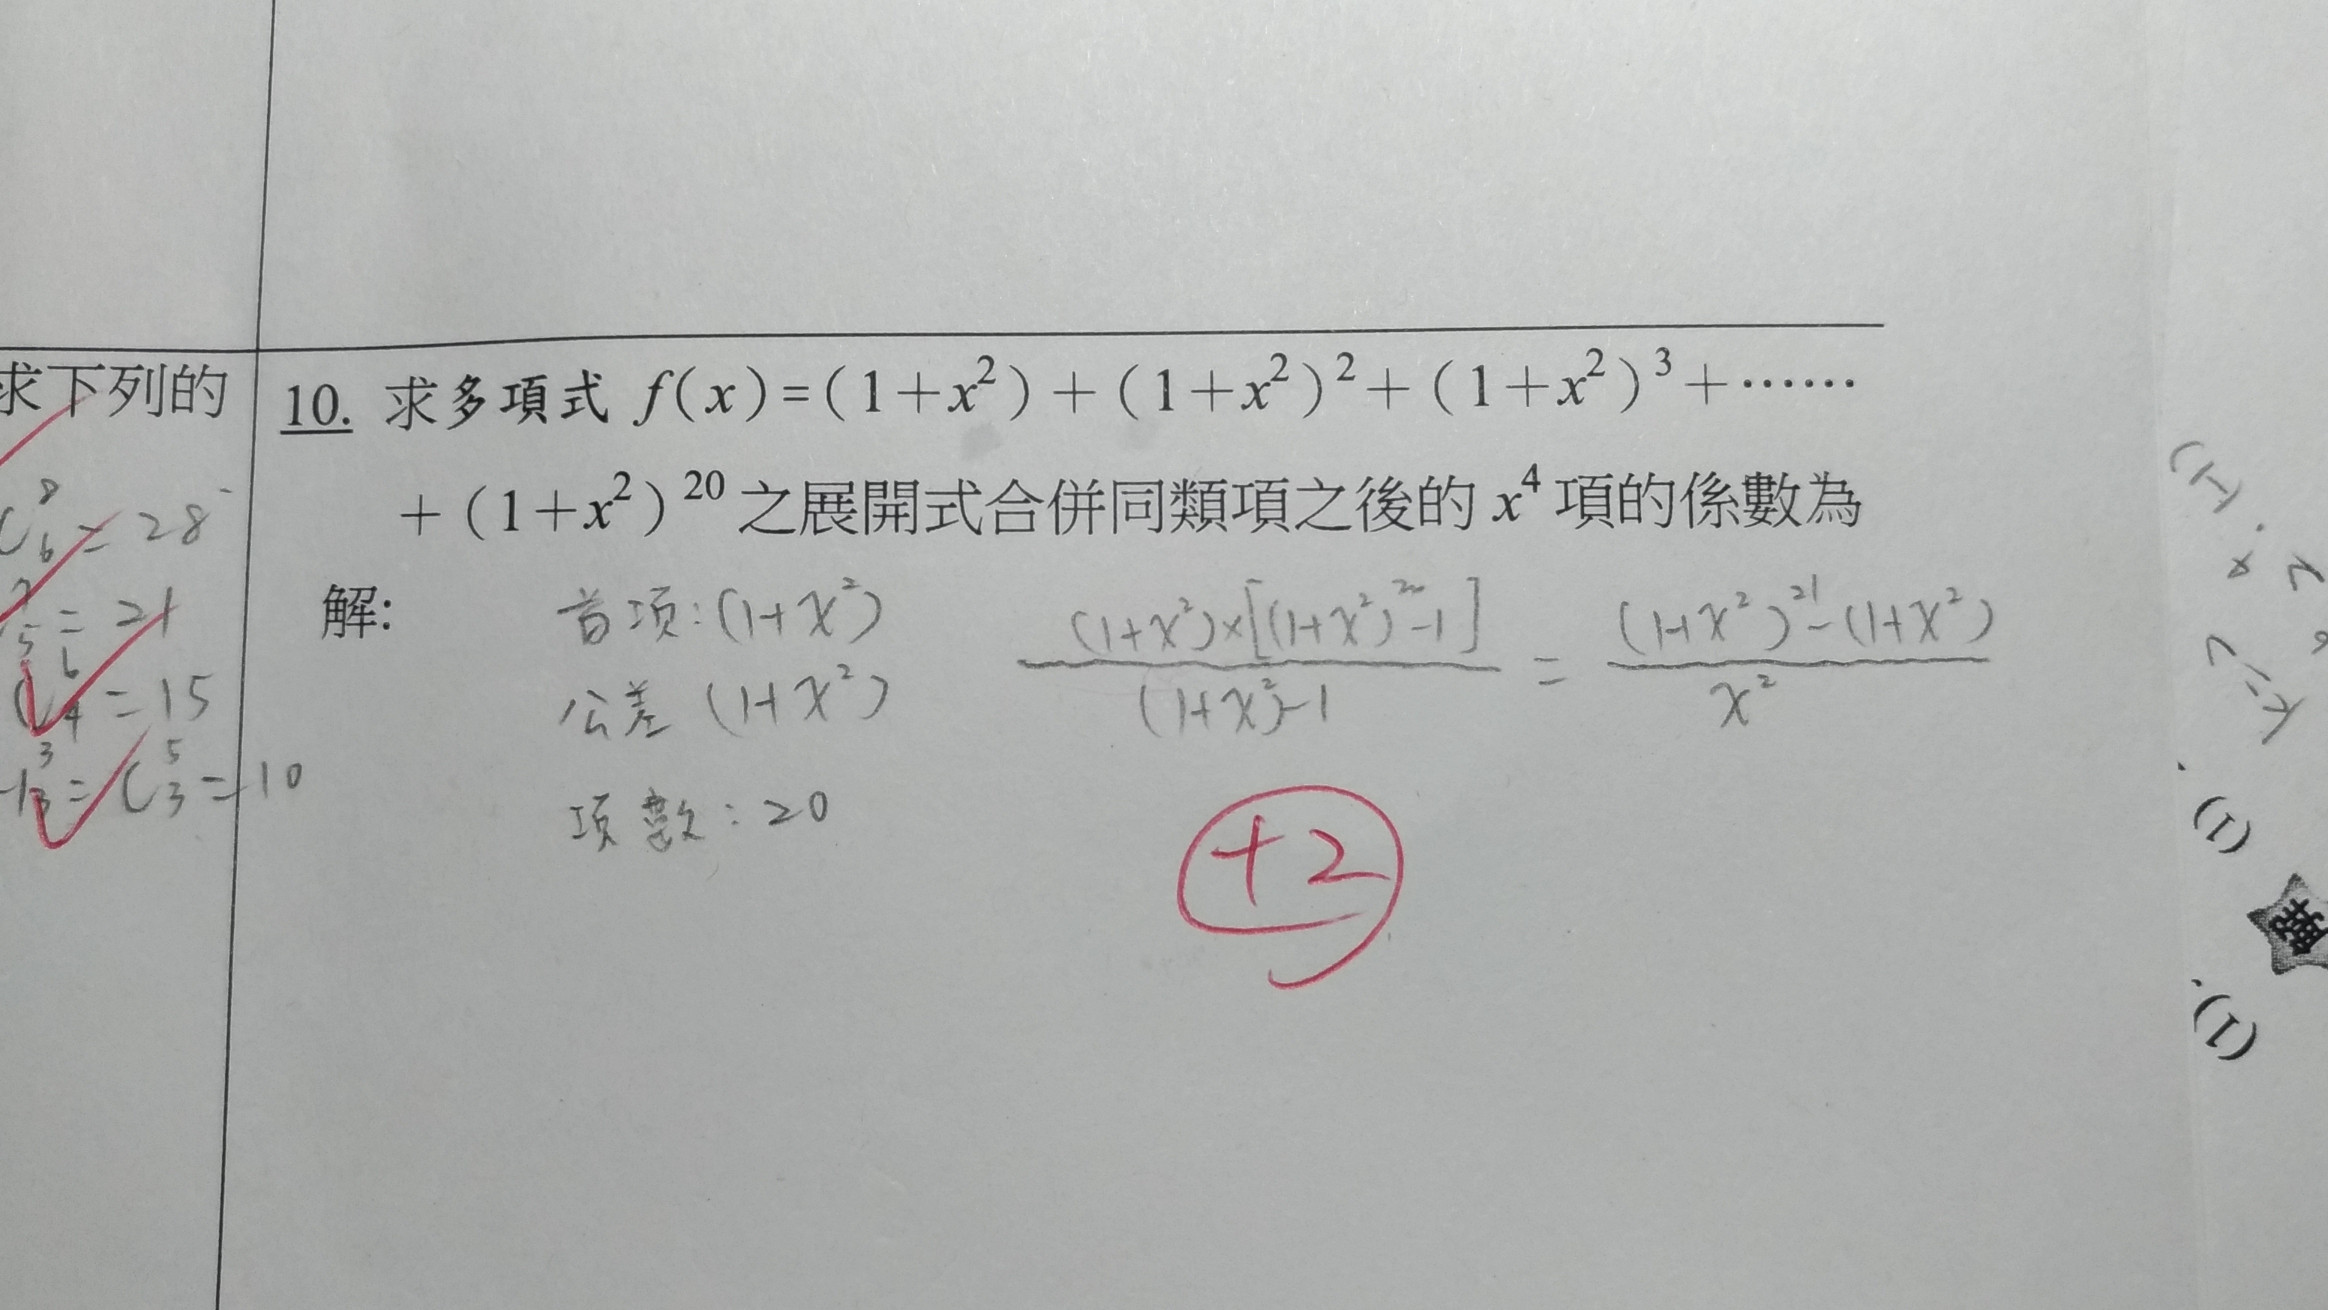 求下列的
C⁸₆ = 28
⁷₅ = 21
C⁶₄ = 15
³₃ = C⁵₃ = 10
10. 求多項式 f(x)=(1+x²)+(1+x²)²+(1+x²)³+⋯⋯
+(1+x²)²⁰之展開式合併同類項之後的 x⁴ 項的係數為
解:
首項:(1+x²)
公差 (1+x²)
項數:20
(1+x²)×[(1+x²)²⁰-1] / (1+x²)-1 = (1+x²)²¹-(1+x²) / x²
+2
(1)
解
(1)